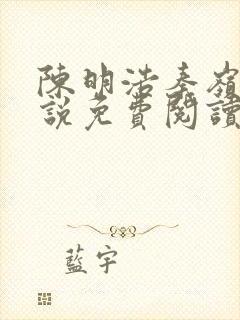 陳明浩秦嶺
說免費閱讀
藍宇